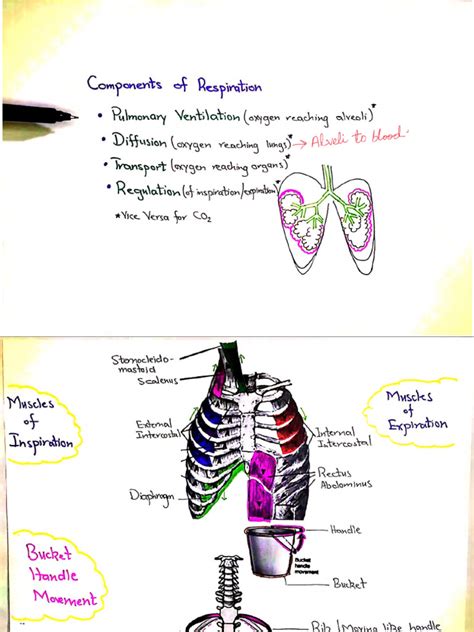 Components of Respiration
• Pulmonary Ventilation (oxygen reaching alveoli)*
• Diffusion (oxygen reaching lungs)* → Alveli to blood.
• Transport (oxygen reaching organs)*
• Regulation (of inspiration/expiration)
*Vice Versa for CO2
Stenocleido-
mastoid
Scalenus
Muscles
of
Inspiration
Muscles
of
Expiration
External
Intercostal
Internal
Intercostal
Rectus
Abdominus
Diaphragm
Handle
Bucket
handle
movement
Bucket
Bucket
Handle
Movement
Rib (Moving like handle